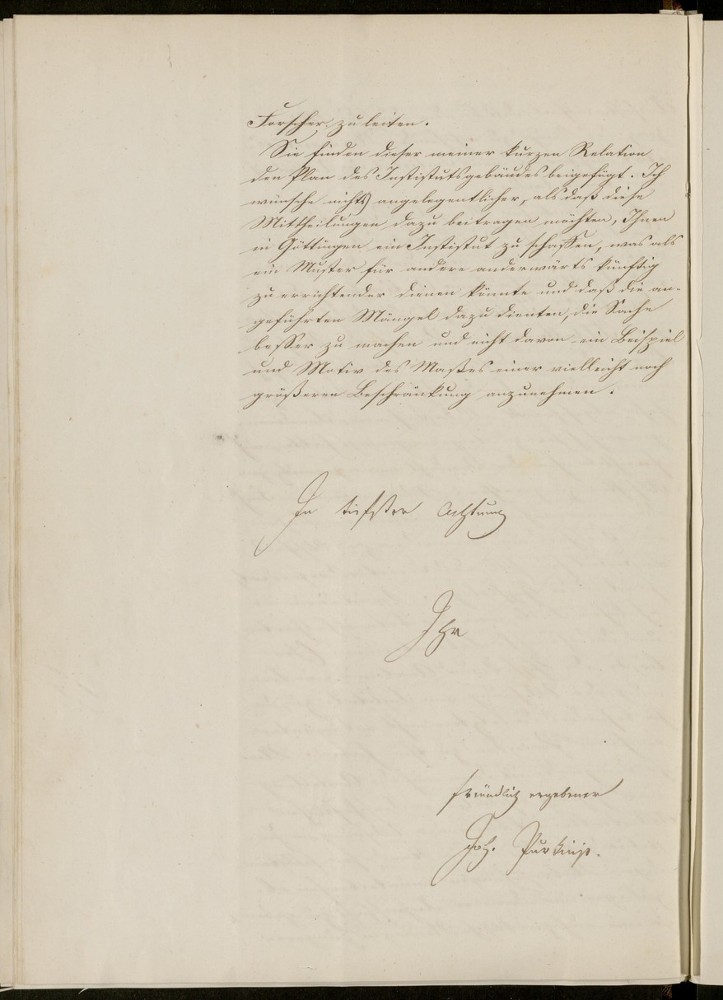 Forscher zu leiten.
Sie finden dieser meiner kurzen Relation
den Plan des Institutsgebäudes beigefügt. Ich
wünsche nichts angelegentlicher, als daß diese
Mittheilungen dazu beitragen möchten, Ihnen
in Göttingen ein Institut zu schaffen, was als
ein Muster für andere anderwärts künftig
zu errichtender dienen könnte und daß die an-
geführten Mängel dazu dienten, die Sache
besser zu machen und nicht davon ein Beispiel
und Motiv des Maßes einer vielleicht noch
größeren Beschränkung anzunehmen.
In tiefster Achtung
Ihr
freundlich ergebener
Joh. Purkinje.